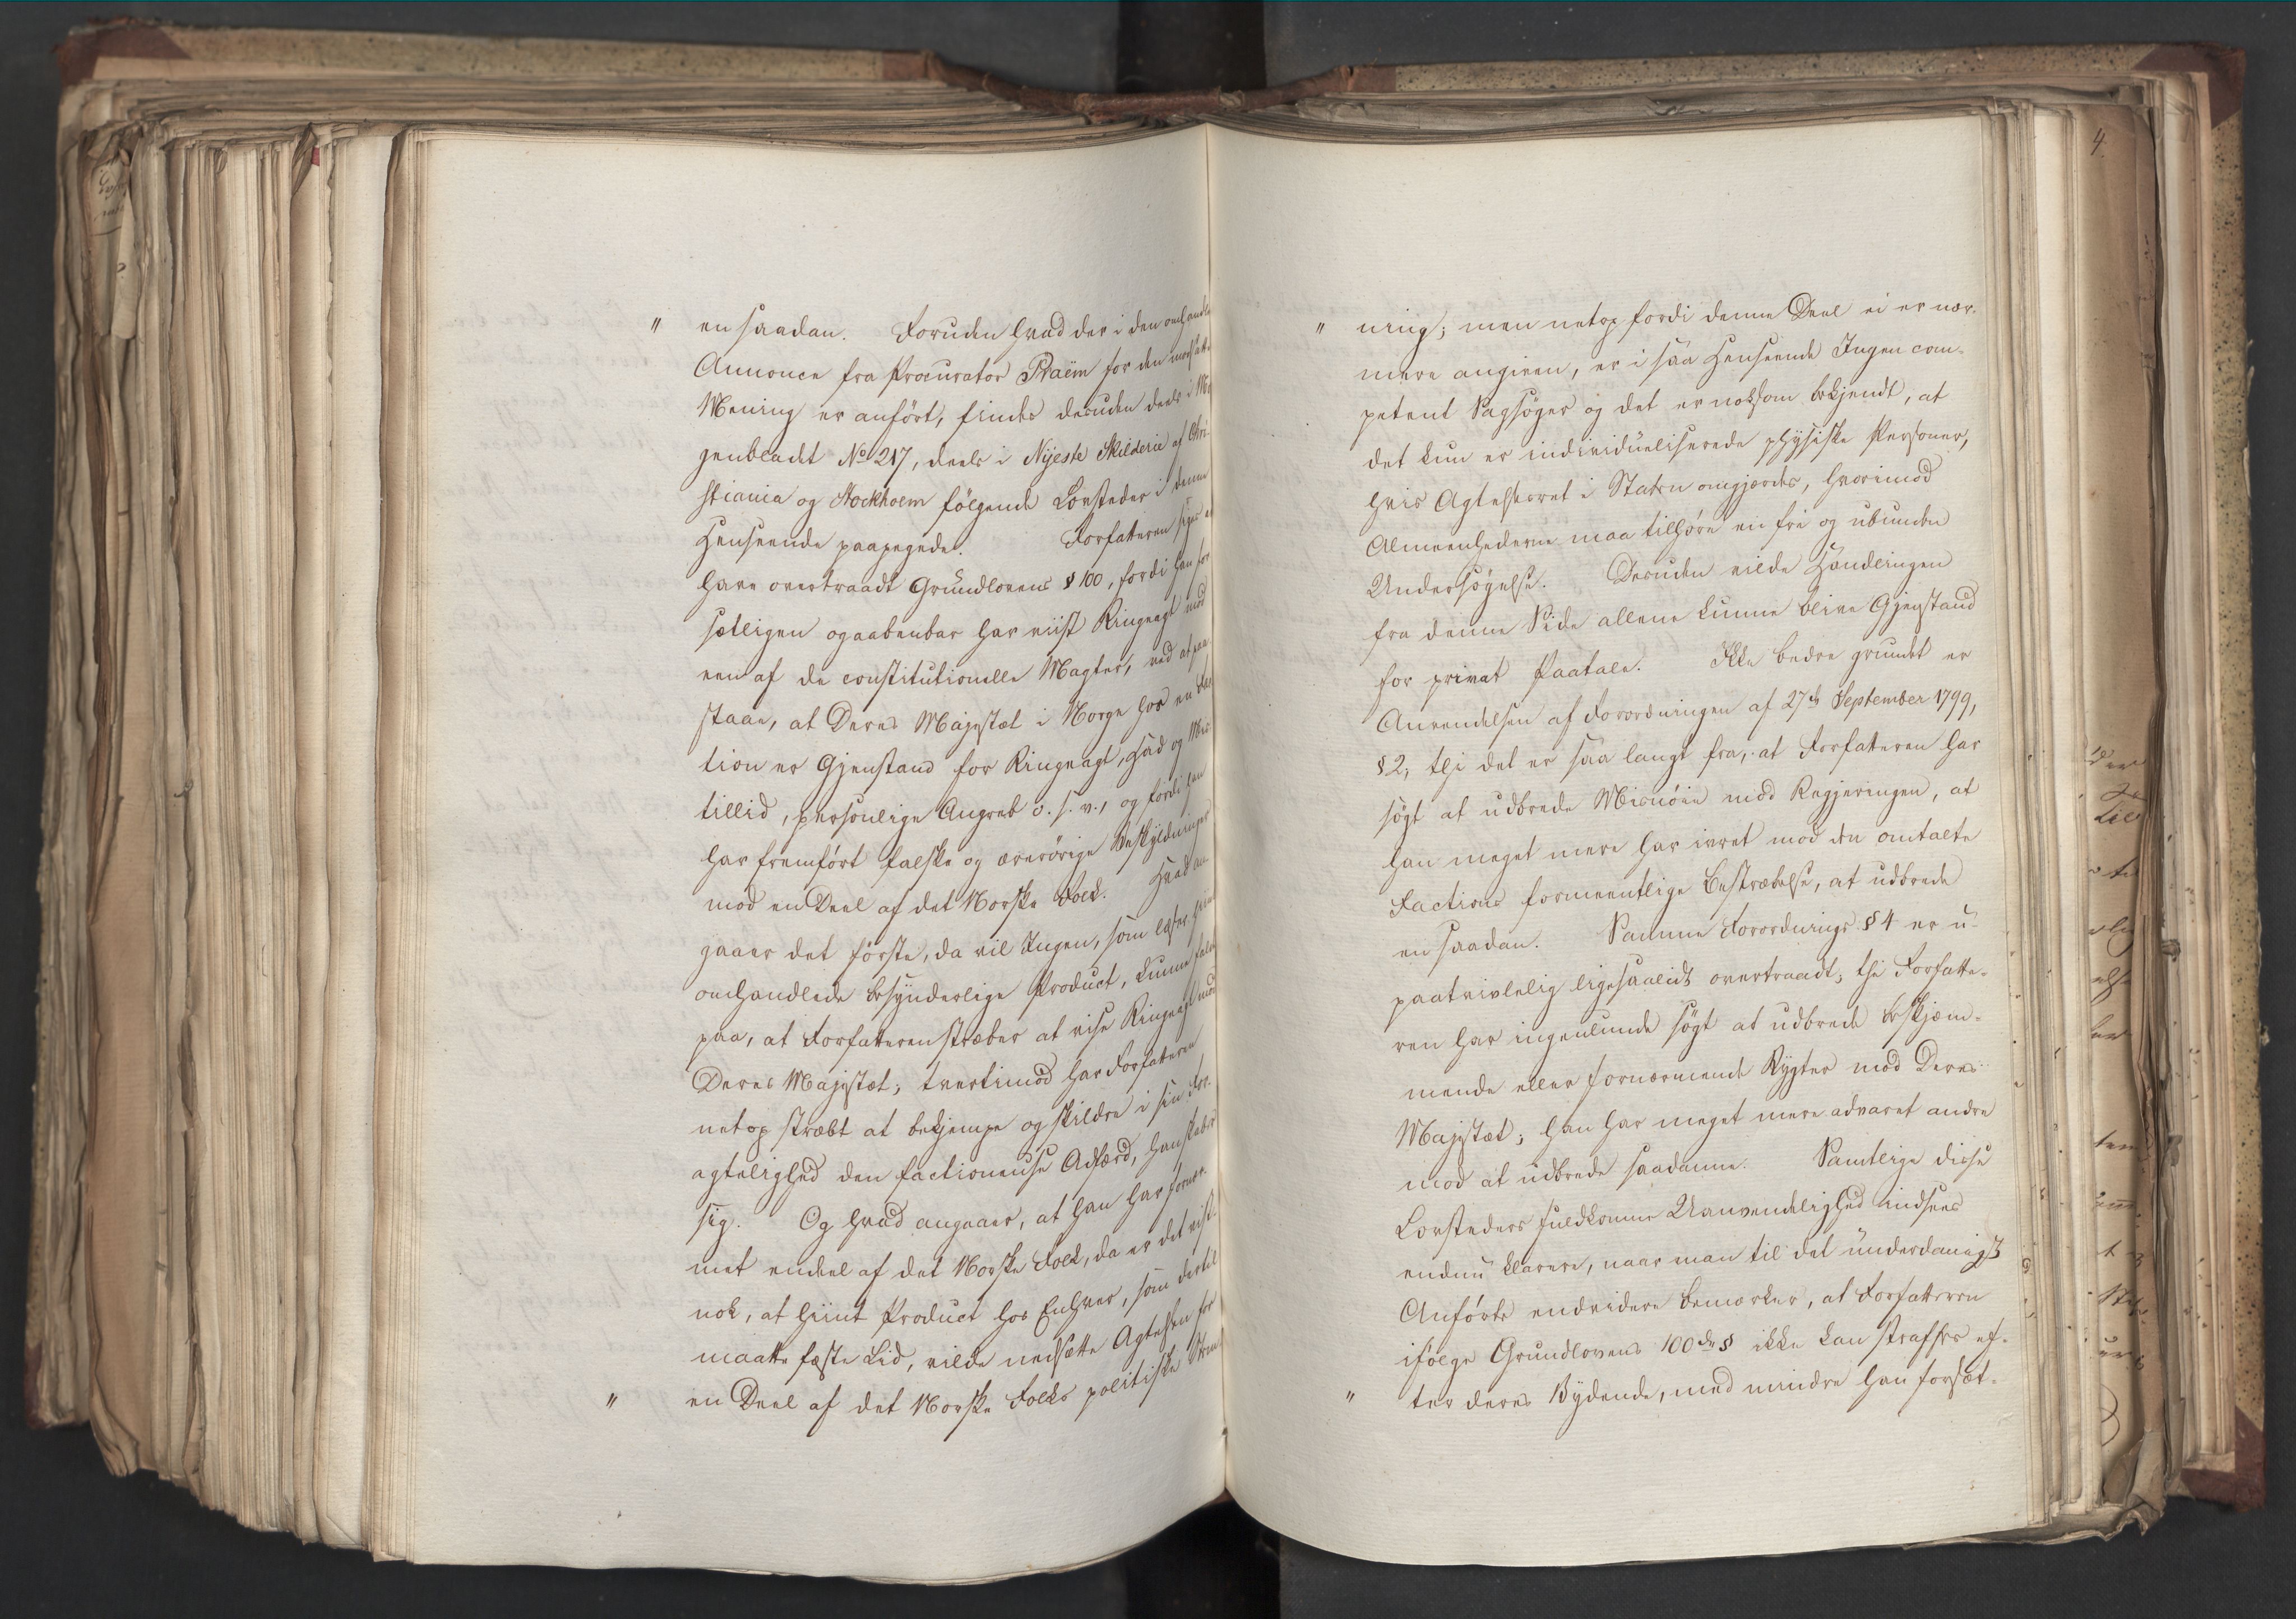 " en saadan. Foruden hvad der i den omhandle
Annonce fra Procurator Praëm for den modsatte
Mening er anført, findes desuden deels i Mor
genbladet No 217, deels i Nyeste Skilderie af Chri-
stiania og Stockholm følgende Lovsteder i denne
Henseende paapegede. Forfatteren siges at
have overtraadt Grundlovens § 100, fordi han for
sætligen og aabenbar har viist Ringeagt mod
een af de constitutionelle Magter, ved at paa
staae, at Deres Majestæt i Norge hos en Fac
tion er Gjenstand for Ringeagt, Had og Mis
tillid, personlige Angreb o. s. v., og fordi han
har fremført falske og ærerørige Beskyldninger
mod en Deel af det Norske Folk. Hvad an
gaaer det første, da vil Ingen, som læser hiint
omhandlede besynderlige Product, kunne falde
paa, at Forfatteren stræber at vise Ringeagt mod
Deres Majestæt; tvertimod har Forfatteren
netop stræbt at bekjempe og skildre i sin For-
agtelighed den factioneuse Adfærd, han skaber
sig. Og hvad angaaer, at han har fornær-
met endeel af det Norske Folk, da er det vist
nok, at hiint Product hos Enhver, som dertil
maatte fæste Lid, vilde nedsætte Agtelsen for
" en Deel af det Norske Folks politiske Stem
" ning; men netop fordi denne Deel ei er nær-
mere angiven, er i saa Henseende Ingen com-
petent Sagsøger og det er noksom bekjendt, at
det kun er individualiserede physiske Personer,
hvis Agtelse vernet i Staten omgjærdes, hvorimod
Almeenhederne maa tilhøre en fri og ubunden
Undersøgelse. Desuden vilde Handlingen
fra denne Side allene kunne blive Gjenstand
for privat Paatale. Ikke bedre grundet er
Anvendelsen af Forordningen af 27de September 1799,
§ 2, thi det er saa langt fra, at Forfatteren har
søgt at udbrede Misnøie mod Regjeringen, at
han meget mere har ivret mod den omtalte
Factions formeentlige Bestræbelse, at udbrede
en saadan. Samme Forordnings § 4 er u-
paatvivlelig ligesaalidt overtraadt; thi Forfatte-
ren har ingenlunde søgt at udbrede beskjæm-
mende eller fornærmende Rygter mod Deres
Majestæt; han har meget mere advaret andre
mod at udbrede saadanne. Samtlige disse
Lovsteders fuldkomne Uanvendelighed indsees
endnu klarere, naar man til det underdanigst
Anførte endvidere bemærker, at Forfatteren
ifølge Grundlovens 100de § ikke kan straffes ef-
" ter deres Bydende, med mindre han forsæt-
4.